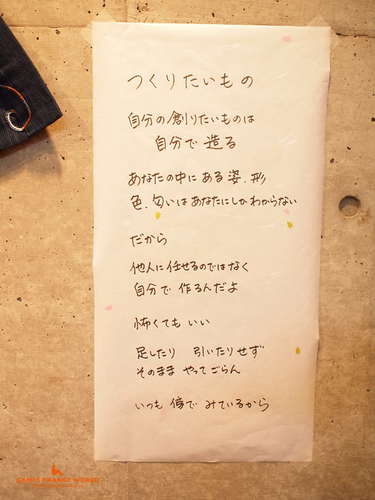 つくりたいもの
自分の創りたいものは
自分で 造る
あなたの中にある姿、形
色、匂いはあなたにしかわからない
だから
他人に任せるのではなく
自分で 作るんだよ
怖くても いい
足したり 引いたりせず
そのまま やってごらん
いつも 傍で みているから
GAMI'S ORANGE WORLD